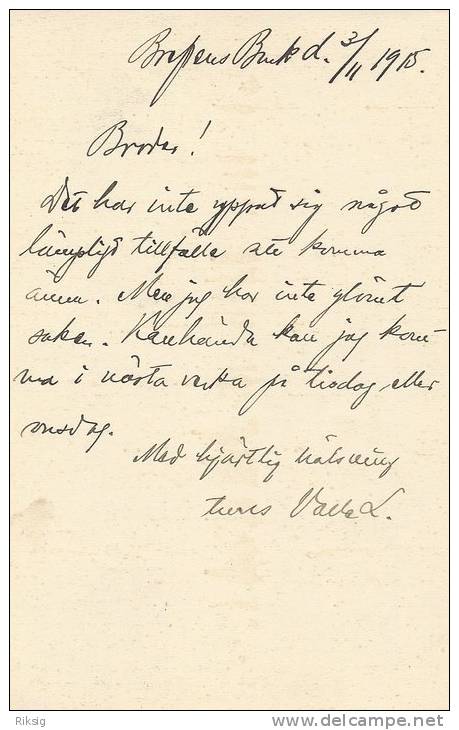 Brefvens Bruk d. 3/11 1915.
Broder!
Det har inte yppat sig något
lämpligt tillfälle att komma
ännu. Men jag har inte glömt
saken. Kanhända kan jag kom-
ma i nästa vecka på tisdag eller
onsdag.
Med hjärtlig hälsning
L.
Riksig
www.delcampe.net